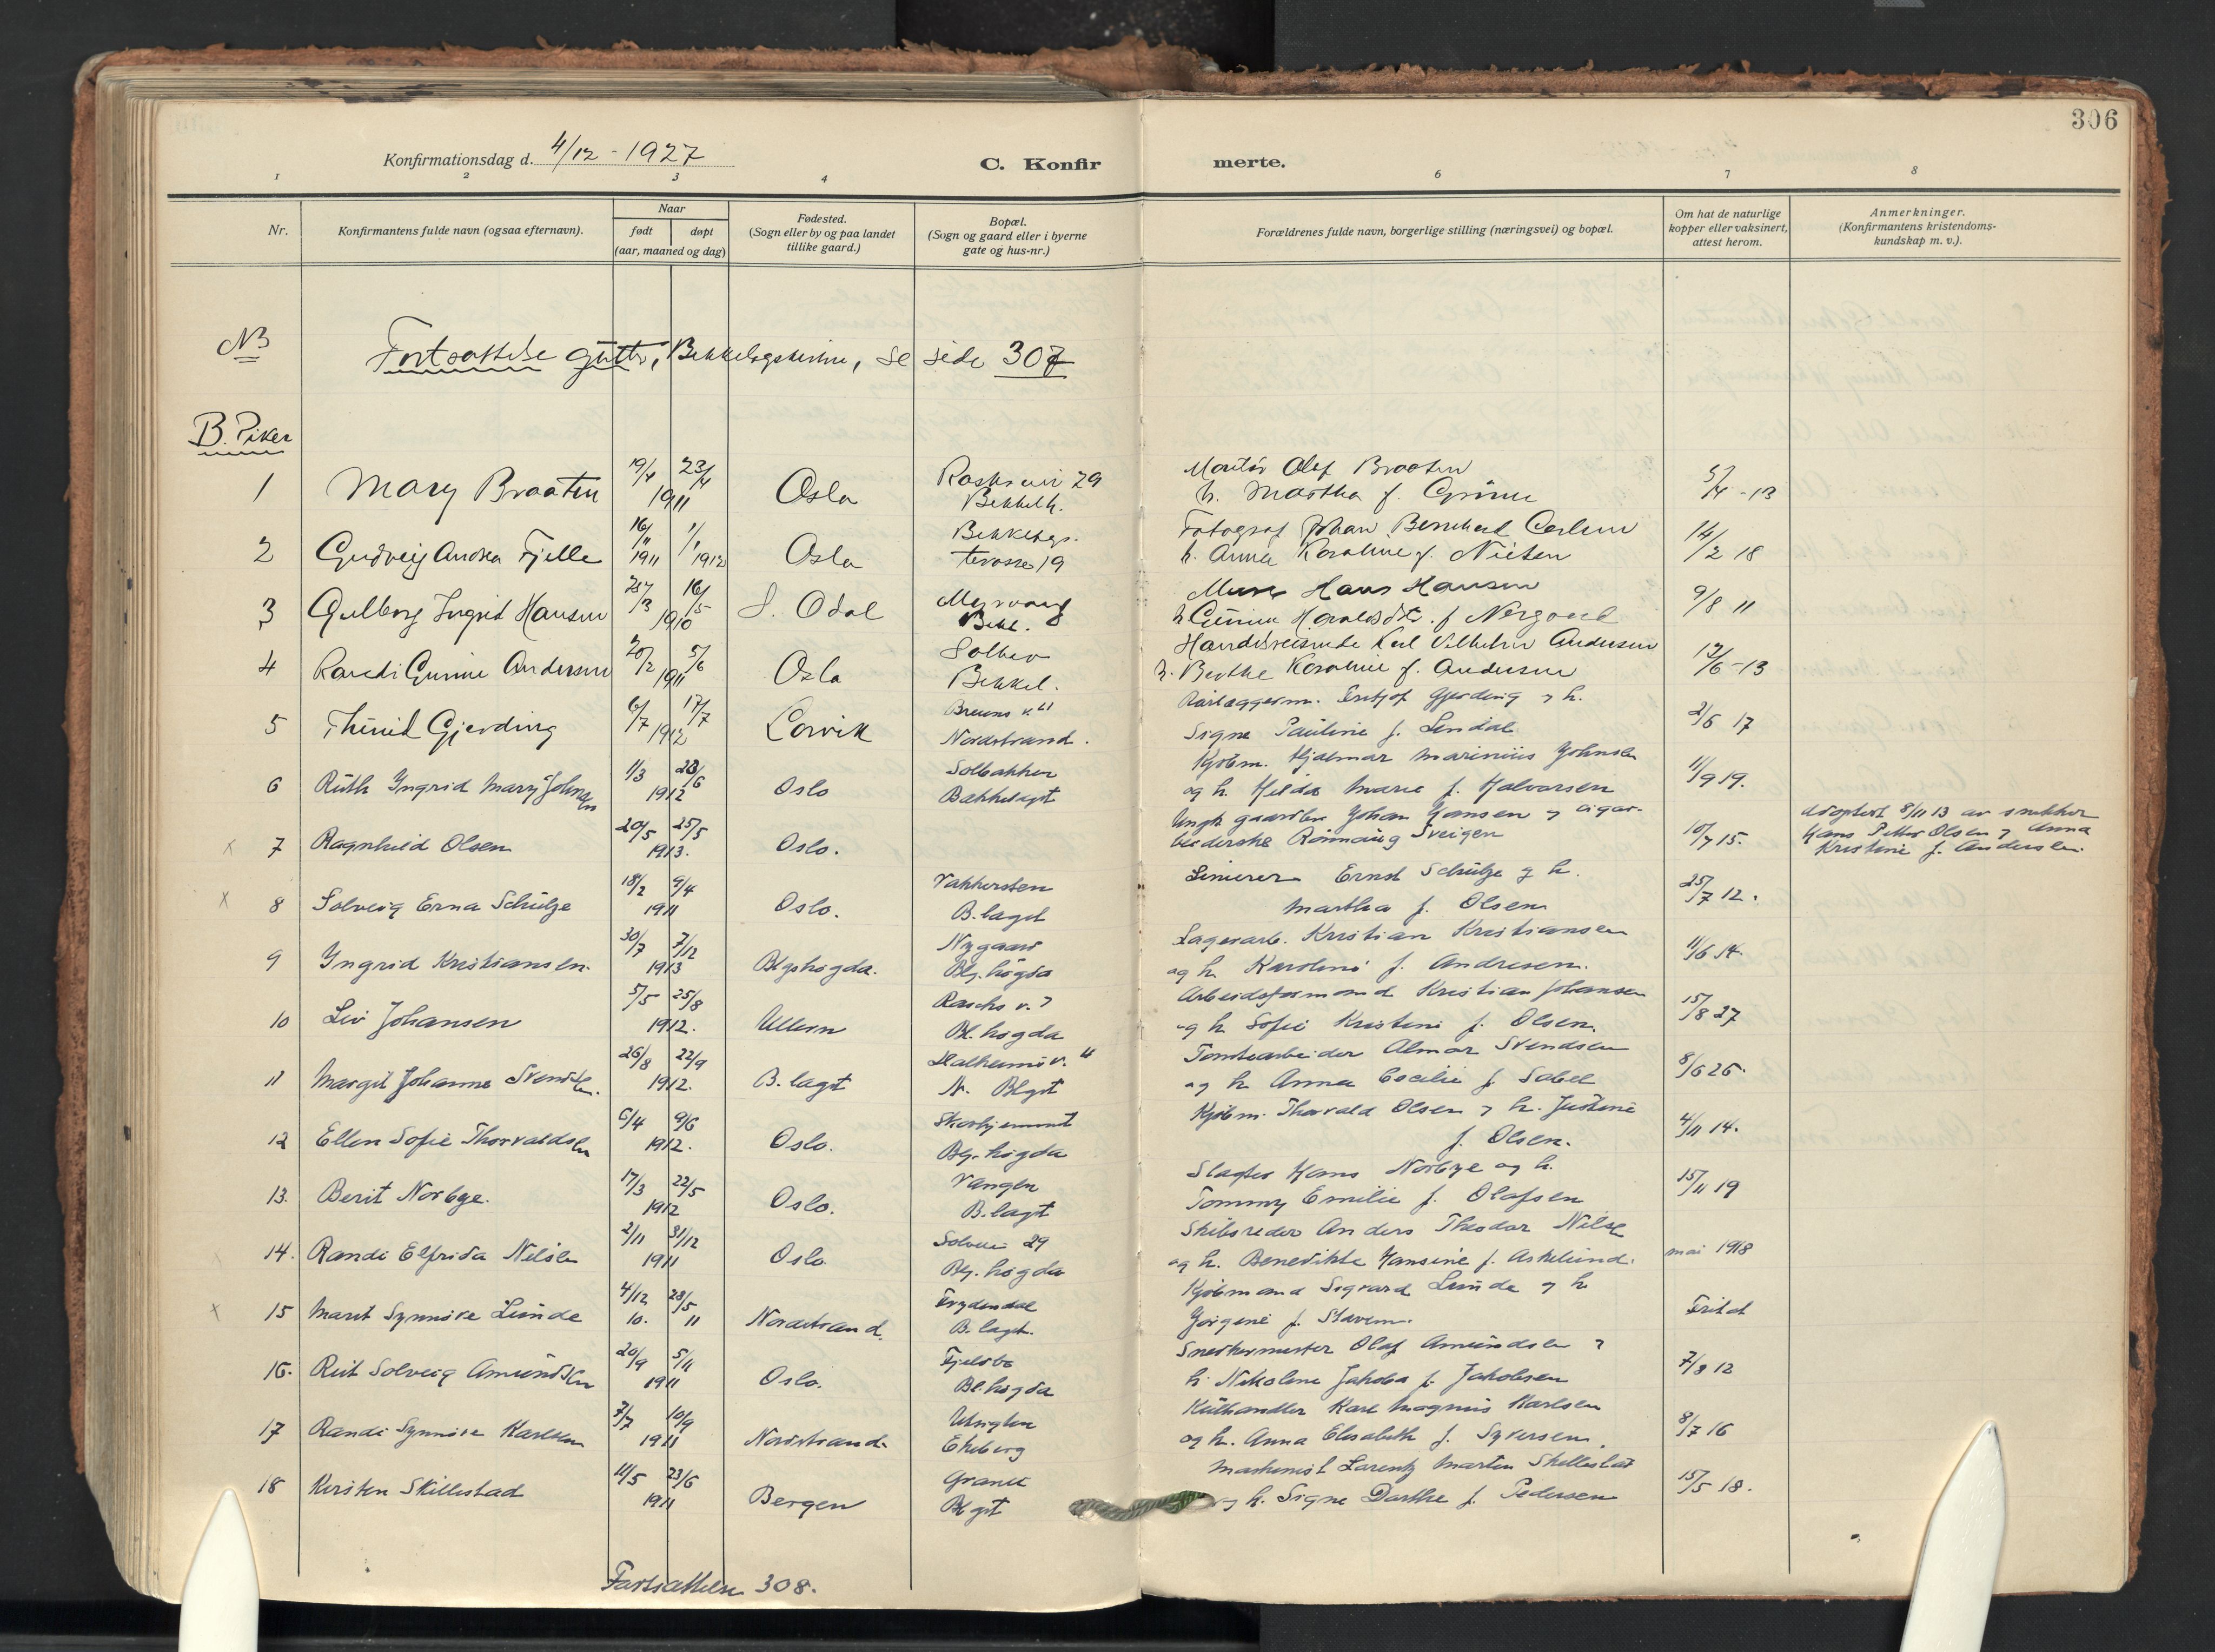 306
Konfirmationsdag d. 4/12 - 1927
C. Konfir merte.
1 2 3 4 6 7 8
Nr.
Konfirmantens fulde navn (ogsaa efternavn).
Naar
født døpt
(aar, maaned og dag)
Fødested.
(Sogn eller by og paa landet
tillike gaard.)
Bopæl.
(Sogn og gaard eller i byerne
gate og hus-nr.)
Forældrenes fulde navn, borgerlige stilling (næringsvei) og bopæl.
Om hat de naturlige
kopper eller vaksinert,
attest herom.
Anmerkninger.
(Konfirmantens kristendoms-
kundskap m. v.).
NB
Fortsættelse gutter, se side 307
B. Piker
1 Mary Braaten 19/4 23/4 1911 Oslo 29 Bekkelh.
Olaf Braaten
h. Martha f.
5/4 - 13
2 Gudveig Andrea Fjelle 16/11 1911 1/1 1912 Oslo Bekkelags. terasse 19
Fotograf Johan Bernhard Carlsen
h. Anna Karoline f. Nilsen
14/2 18
3 Gulborg Ingrid Hansen 16/5 1910 S. Odal Myrvang Bekl.
Murer Hans Hansen
h. Haraldsdt. f. Nergaard
9/8 11
4 Randi Andersen 20/2 5/6 1911 Oslo Bekkel.
Handelsreisende Karl Vilhelm Andersen
h. Berthe Karoline f. Andersen
13/6 - 13
5 Gjerding 6/7 17/7 1912 Larvik Nordstrand.
Gjerding og h.
Signe Pauline f. Lindal
2/6 17
6 Ruth Ingrid Mary Johnsen 1/3 23/6 1912 Oslo Solbakken Bækkelaget
Kjøbm. Hjalmar Marinius Johnsen
og h. Hilda Marie f. Halvorsen
11/9 19.
x 7 Ragnhild Olsen 20/5 25/5 1913. Oslo.
Ungk. Johan Jansen og cigar-
beiderske Sveigen
10/7 15.
Adoptert 8/11 13 av snekker
Hans Petter Olsen og Anna
Kristine f. Andersen.
x 8 Solveig Erna Schulze 18/2 9/4 1911 Oslo. B. laget
Ernst Schulze og h.
Martha f. Olsen
25/7 12.
9 Ingrid Kristiansen. 30/7 7/12 1913 Blgshøgda. Nygaard Blg. høgda
Lagerarb. Kristian Kristiansen
og h. Karoline f. Andresen.
11/6 14.
10 Liv Johansen 5/5 25/8 1912. Ullern Raschs v. 7 Bl. høgda
Arbeidsformand Kristian Johansen
og h. Sofie Kristine f. Olsen.
15/8 27
11 Margit Johanne Svendsen. 26/8 22/9 1912. B. laget N. Blgt
Tomtearbeider Almar Svendsen
og h. Anna Cecilie f. Sabel
8/6 26.
12 Ellen Sofie Thorvaldsen 6/4 9/6 1912. Oslo. Blg. høgda
Kjøbm. Thorvald Olsen og h. Justine
f. Olsen.
4/11 14.
13. Berit Norbye. 17/3 22/5 1912 Oslo. Vangen B. laget
Slagter Hans Norbye og h.
Tommy Emilie f. Olafsen
15/11 19
14. Randi Elfrida Nilsen 2/11 31/12 1911 Oslo Solvei 29 Blg. høgda
Skibsreder Anders Theodor Nilsen
og h. Benedikte Hansine f. Askelund.
mai 1918
x 15 Marit Synnøve Lunde 4/12 10. 28/5 11 Nordstrand. Frydendal B. laget.
Kjøbmand Sigvard Lunde og h
Jørgine f. Stavem.
Fritat
16. Rut Solveig Amundsen 20/9 5/11 1911 Oslo. Fjeldbo Bl. høgda
Snekkermester Olaf Amundsen og
h. Nikoline Jakoba f. Jakobsen
7/8 12
17 Randi Synnøve Karlsen 7/7 10/9 1911 Nordstrand. Utsigten Ekeberg
Kulhandler Karl Magnus Karlsen
og h. Anna Elisabeth f. Syversen.
8/7 16
18 Kirsten Skillestad 11/5 23/6 1911 Bergen Blgt
Maskinist Larentz Martin Skillestad
og h. Signe Darthe f. Pedersen
15/5 18.
Fortsættelse 308.